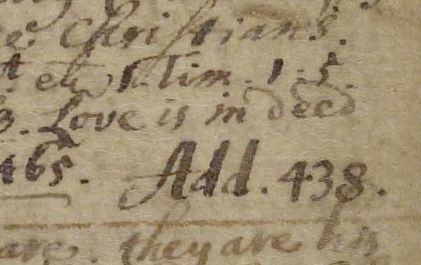 Christians.
1. Tim. 1. 5
3. Love is in deed
465. Add. 438.
are. they are his